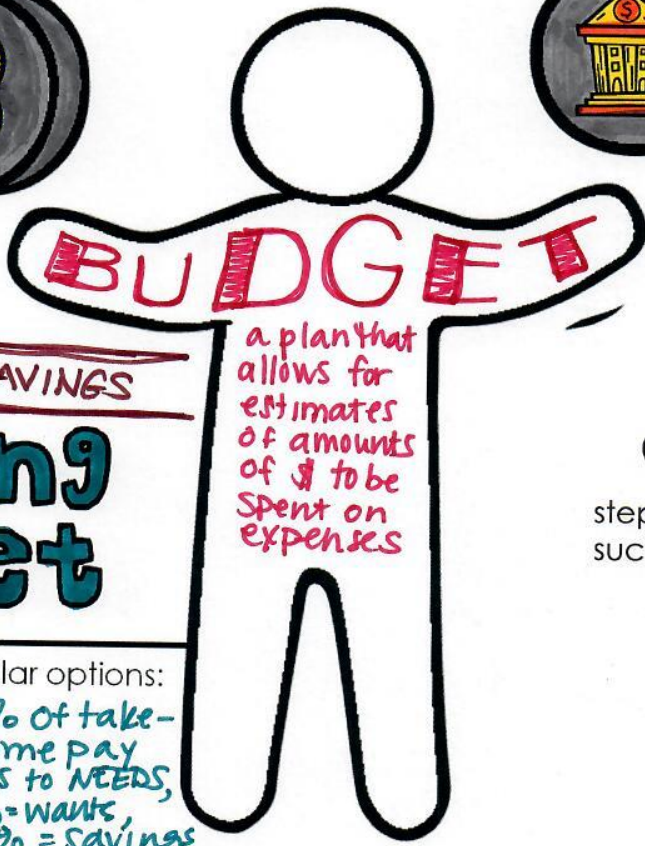 $
BUDGET
a plan that
allows for
estimates
of amounts
of $ to be
spent on
expenses
AVINGS
ng
et
lar options:
% of take-
me pay
s to NEEDS,
= wants,
% = savings
step
suc